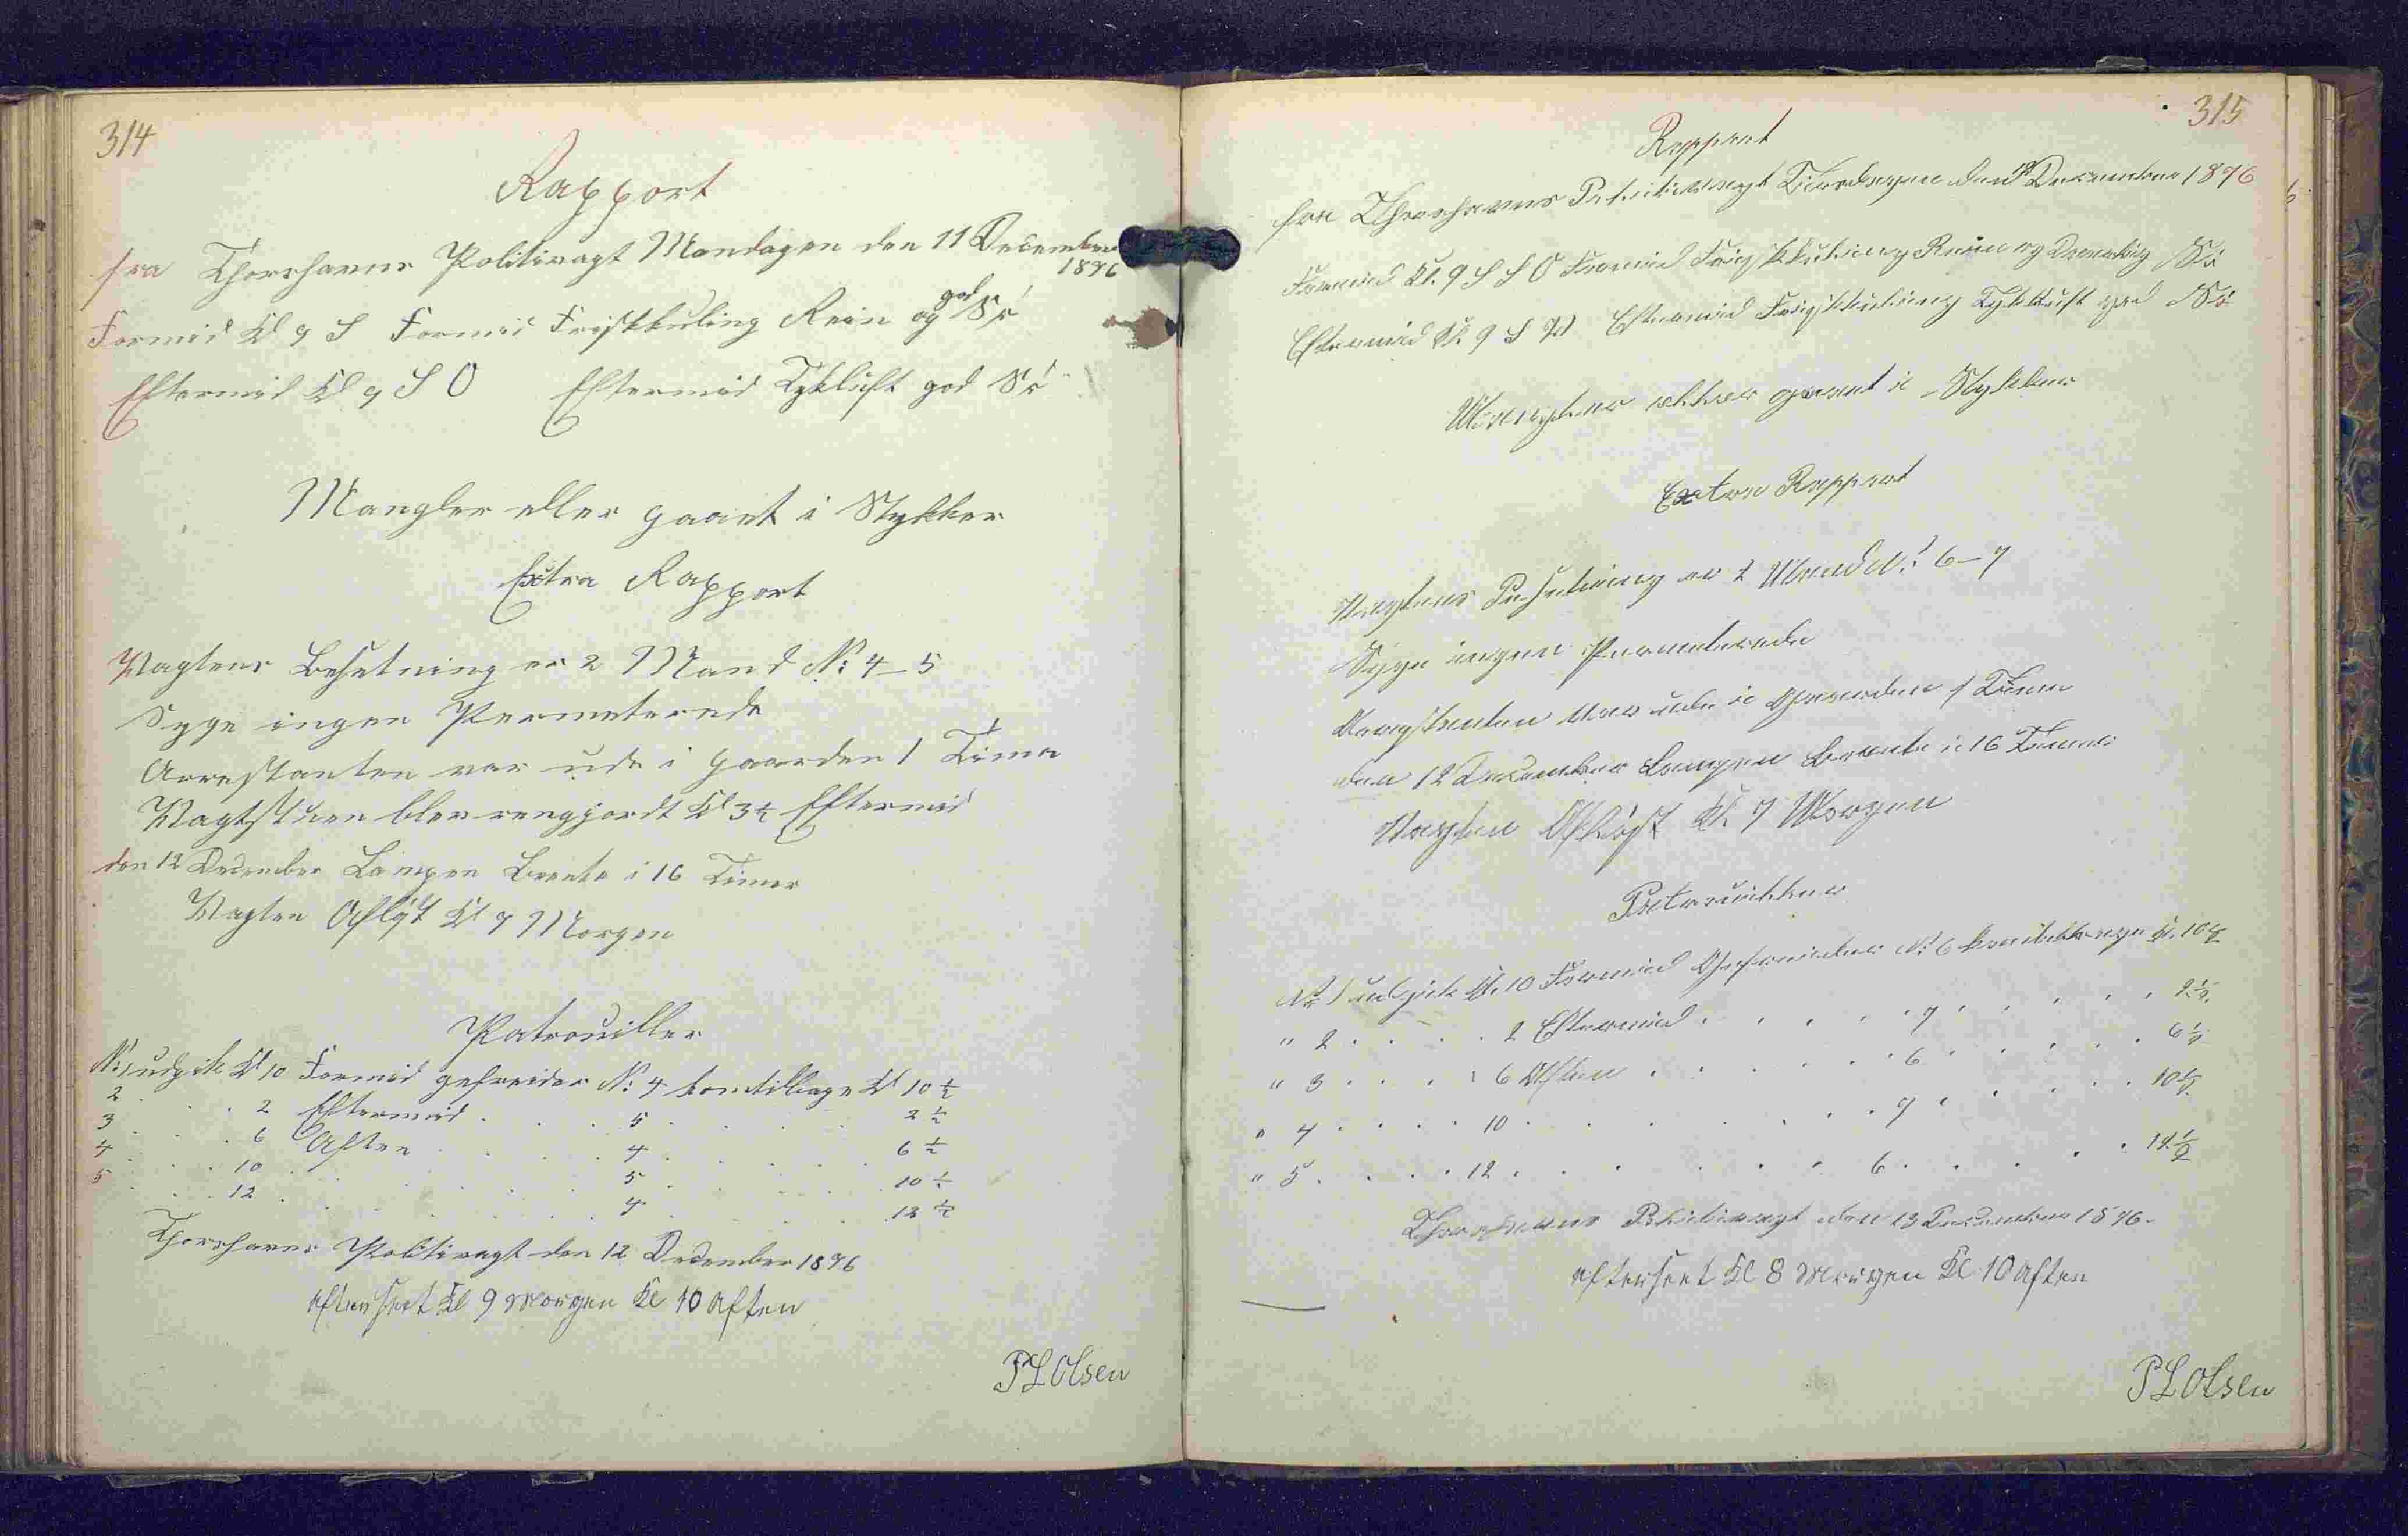 314
Rapport
fra Thorshavns Politivagt Mandagen den 11 December
1876
Formid Kl 9 S Formid Friskkuling Rein og god Sö
Eftermid Kl 9 S O Eftermid Tykluft god Sö
Mangler eller gaaet i Stykker
Extra Rapport
Vagtens Besetning er 2 Mand N: 4-5
Syge ingen Permeterede
Arrestanten var ude i Gaarden 1 Time
Vagtstuen blev rengjordt Kl 3½ Eftermid
den 12 December Lampen Brente i 16 Timer
Vagten Aflöst Kl 7 Morgen
Patrouiller
N: 1 udgik Kl 10 Formid gefreider N: 4 komtilbage Kl 10 ½
2 . . . 2 Eftermid . . . 5 . . . 2 ½
3 . . . 6 Aften . . . 4 . . . 6 ½
4 . . . 10 . . . 5 . . . 10 ½
5 . . . 12 . . . 4 . . . 12 ½
Thorshavns Politivagt den 12 December 1876
efterseet Kl 9 Morgen Kl 10 Aften
P L Olsen
315
Rapport
fra Thorshavns Politivagt Tirsdagen den 12 December 1876
Formid Kl. 9 S S O Formid Friskkuling Rein og Sö
Eftermid Kl. 9 S W Eftermid Friskkuling Tykluft god Sö
Mangler eller gaaet i Stykker
Extra Rapport
Vagtens Besetning er 2 Mand N: 6-7
Syge ingen Permeterede
Arrestanten var ude i Gaarden 1 Time
den 12 December Lampen Brente i 16 Timer
Vagten Aflöst Kl. 7 Morgen
Patrouiller
Nr 1 udgik Kl. 10 Formid Gefreider N: 6 komtilbage Kl. 10½
" 2 . . . . 2 Eftermid . . . . 7 . . . . 2½
" 3 . . . . 6 Aften . . . . 6 . . . . 6½
" 4 . . . . 10 . . . . 7 . . . . 10½
" 5 . . . . 12 . . . . 6 . . . . 12½
Thorshavns Politivagt den 13 December 1876-
efterseet Kl 8 Morgen Kl 10 Aften
P L Olsen